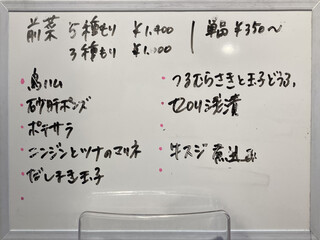 前菜 5種もり ¥1,400
3種もり ¥1,100
単品 ¥350〜
鳥ハム
砂肝ポンズ
ポテサラ
ニンジンとツナのマリネ
だしまき玉子
つるむらさきと玉子どうふ
セロリ浅漬
牛スジ煮込み